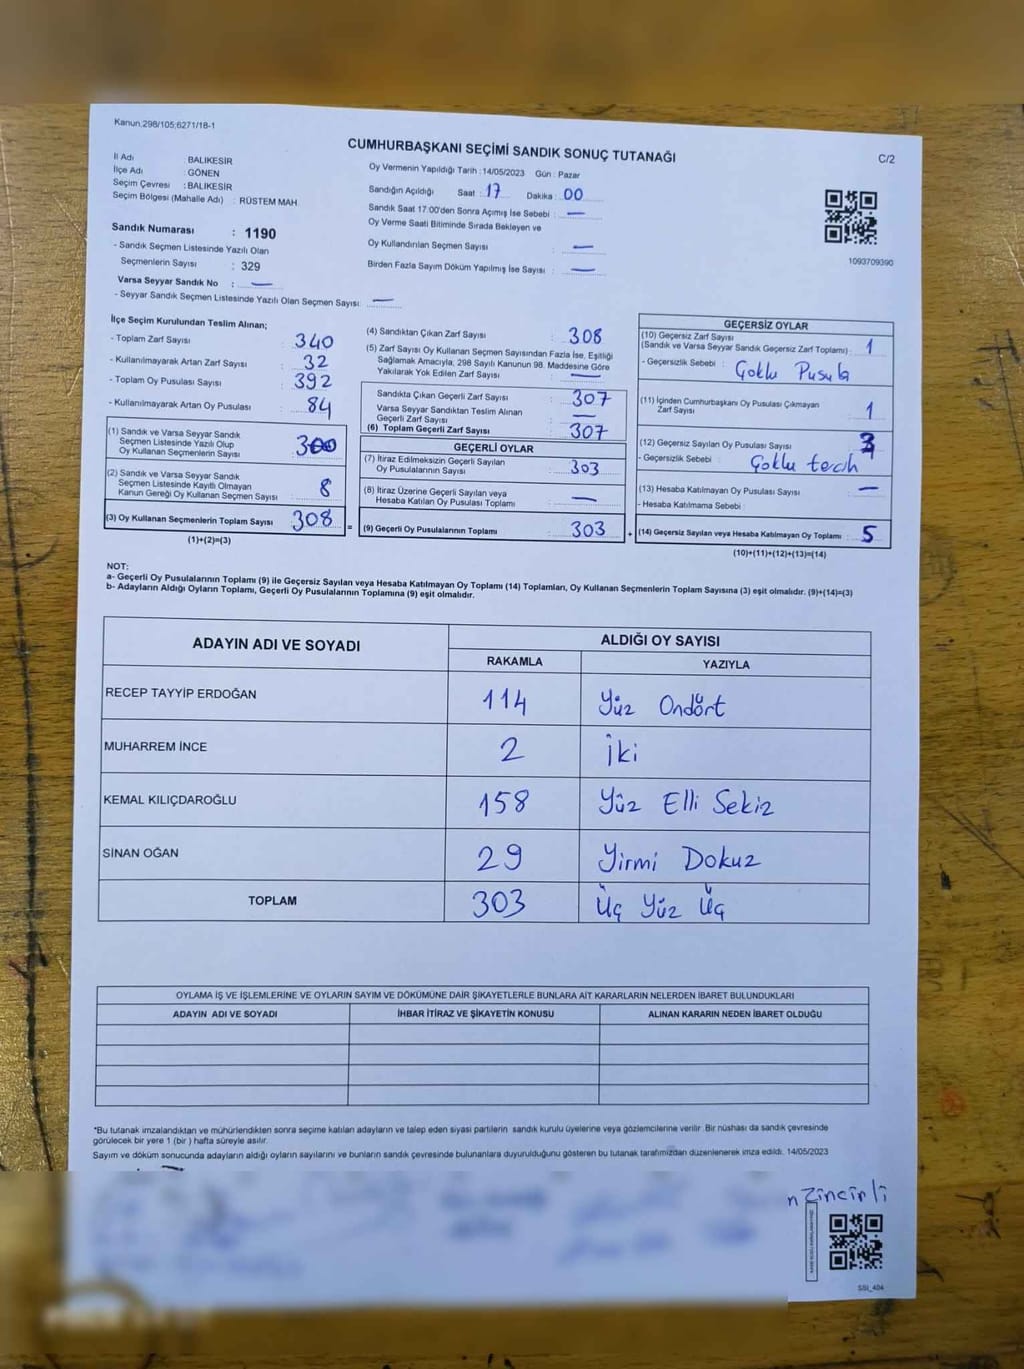 Kanun:298/105;6271/18-1
CUMHURBAŞKANI SEÇİMİ SANDIK SONUÇ TUTANAĞI
C/2
İl Adı BALIKESİR
İlçe Adı : GÖNEN
Seçim Çevresi : BALIKESİR
Seçim Bölgesi (Mahalle Adı) : RÜSTEM MAH.
Oy Vermenin Yapıldığı Tarih : 14/05/2023 Gün : Pazar
Sandığın Açıldığı Saat : 17 Dakika : 00
Sandık Saat 17:00'den Sonra Açımış İse Sebebi : —
Oy Verme Saati Bitiminde Sırada Bekleyen ve
Oy Kullandırılan Seçmen Sayısı : —
Birden Fazla Sayım Döküm Yapılmış İse Sayısı : —
1093709390
Sandık Numarası : 1190
- Sandık Seçmen Listesinde Yazılı Olan
Seçmenlerin Sayısı : 329
Varsa Seyyar Sandık No : —
- Seyyar Sandık Seçmen Listesinde Yazılı Olan Seçmen Sayısı: —
İlçe Seçim Kurulundan Teslim Alınan;
- Toplam Zarf Sayısı : 340
- Kullanılmayarak Artan Zarf Sayısı : 32
- Toplam Oy Pusulası Sayısı : 392
- Kullanılmayarak Artan Oy Pusulası : 84
(1) Sandık ve Varsa Seyyar Sandık
Seçmen Listesinde Yazılı Olup
Oy Kullanan Seçmenlerin Sayısı : 300
(2) Sandık ve Varsa Seyyar Sandık
Seçmen Listesinde Kayıtlı Olmayan
Kanun Gereği Oy Kullanan Seçmen Sayısı : 8
(3) Oy Kullanan Seçmenlerin Toplam Sayısı : 308
(1)+(2)=(3)
(4) Sandıktan Çıkan Zarf Sayısı : 308
(5) Zarf Sayısı Oy Kullanan Seçmen Sayısından Fazla İse, Eşitliği
Sağlamak Amacıyla, 298 Sayılı Kanunun 98. Maddesine Göre
Yakılarak Yok Edilen Zarf Sayısı : —
Sandıkta Çıkan Geçerli Zarf Sayısı : 307
Varsa Seyyar Sandıktan Teslim Alınan
Geçerli Zarf Sayısı : —
(6) Toplam Geçerli Zarf Sayısı : 307
GEÇERLİ OYLAR
(7) İtiraz Edilmeksizin Geçerli Sayılan
Oy Pusulalarının Sayısı : 303
(8) İtiraz Üzerine Geçerli Sayılan veya
Hesaba Katılan Oy Pusulası Toplamı : —
= (9) Geçerli Oy Pusulalarının Toplamı : 303
GEÇERSİZ OYLAR
(10) Geçersiz Zarf Sayısı
(Sandık ve Varsa Seyyar Sandık Geçersiz Zarf Toplamı) : 1
- Geçersizlik Sebebi : Çoklu Pusula
(11) İçinden Cumhurbaşkanı Oy Pusulası Çıkmayan
Zarf Sayısı : 1
(12) Geçersiz Sayılan Oy Pusulası Sayısı : 3
- Geçersizlik Sebebi : Çoklu tercih
(13) Hesaba Katılmayan Oy Pusulası Sayısı : —
- Hesaba Katılmama Sebebi :
+ (14) Geçersiz Sayılan veya Hesaba Katılmayan Oy Toplamı : 5
(10)+(11)+(12)+(13)=(14)
NOT:
a- Geçerli Oy Pusulalarının Toplamı (9) ile Geçersiz Sayılan veya Hesaba Katılmayan Oy Toplamı (14) Toplamları, Oy Kullanan Seçmenlerin Toplam Sayısına (3) eşit olmalıdır. (9)+(14)=(3)
b- Adayların Aldığı Oyların Toplamı, Geçerli Oy Pusulalarının Toplamına (9) eşit olmalıdır.
ADAYIN ADI VE SOYADI ALDIĞI OY SAYISI
RAKAMLA YAZIYLA
RECEP TAYYİP ERDOĞAN 114 Yüz Ondört
MUHARREM İNCE 2 İki
KEMAL KILIÇDAROĞLU 158 Yüz Elli Sekiz
SİNAN OĞAN 29 Yirmi Dokuz
TOPLAM 303 Üç Yüz Üç
OYLAMA İŞ VE İŞLEMLERİNE VE OYLARIN SAYIM VE DÖKÜMÜNE DAİR ŞİKAYETLERLE BUNLARA AİT KARARLARIN NELERDEN İBARET BULUNDUKLARI
ADAYIN ADI VE SOYADI İHBAR İTİRAZ VE ŞİKAYETİN KONUSU ALINAN KARARIN NEDEN İBARET OLDUĞU
*Bu tutanak imzalandıktan ve mühürlendikten sonra seçime katılan adayların ve talep eden siyasi partilerin sandık kurulu üyelerine veya gözlemcilerine verilir. Bir nüshası da sandık çevresinde
görülecek bir yere 1 (bir ) hafta süreyle asılır.
Sayım ve döküm sonucunda adayların aldığı oyların sayılarını ve bunların sandık çevresinde bulunanlara duyurulduğunu gösteren bu tutanak tarafımızdan düzenlenerek imza edildi. 14/05/2023
n Zincirli
SSI_404